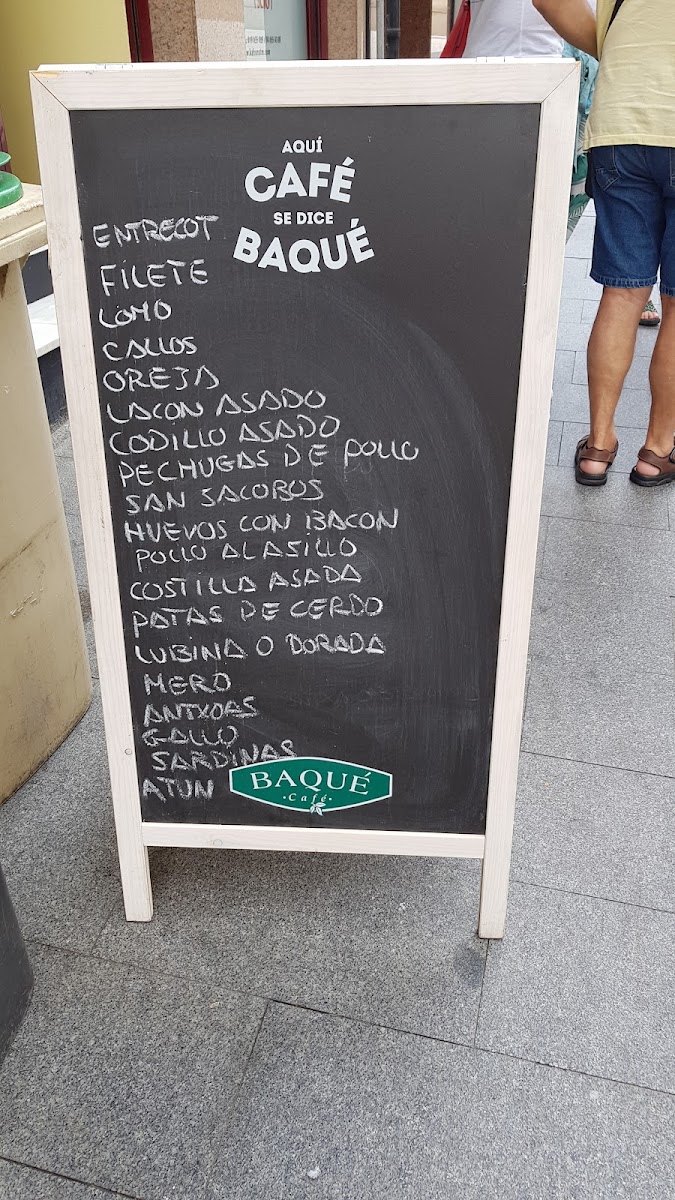 AQUÍ
CAFÉ
SE DICE
BAQUÉ
ENTRECOT
FILETE
LOMO
CALLOS
OREJA
LACON ASADO
CODILLO ASADO
PECHUGAS DE POLLO
SAN JACOBOS
HUEVOS CON BACON
POLLO ALASILLO
COSTILLA ASADA
PATAS DE CERDO
LUBINA O DORADA
MERO
ANTXOAS
GALLO
SARDINAS
ATUN
BAQUÉ
·Café·